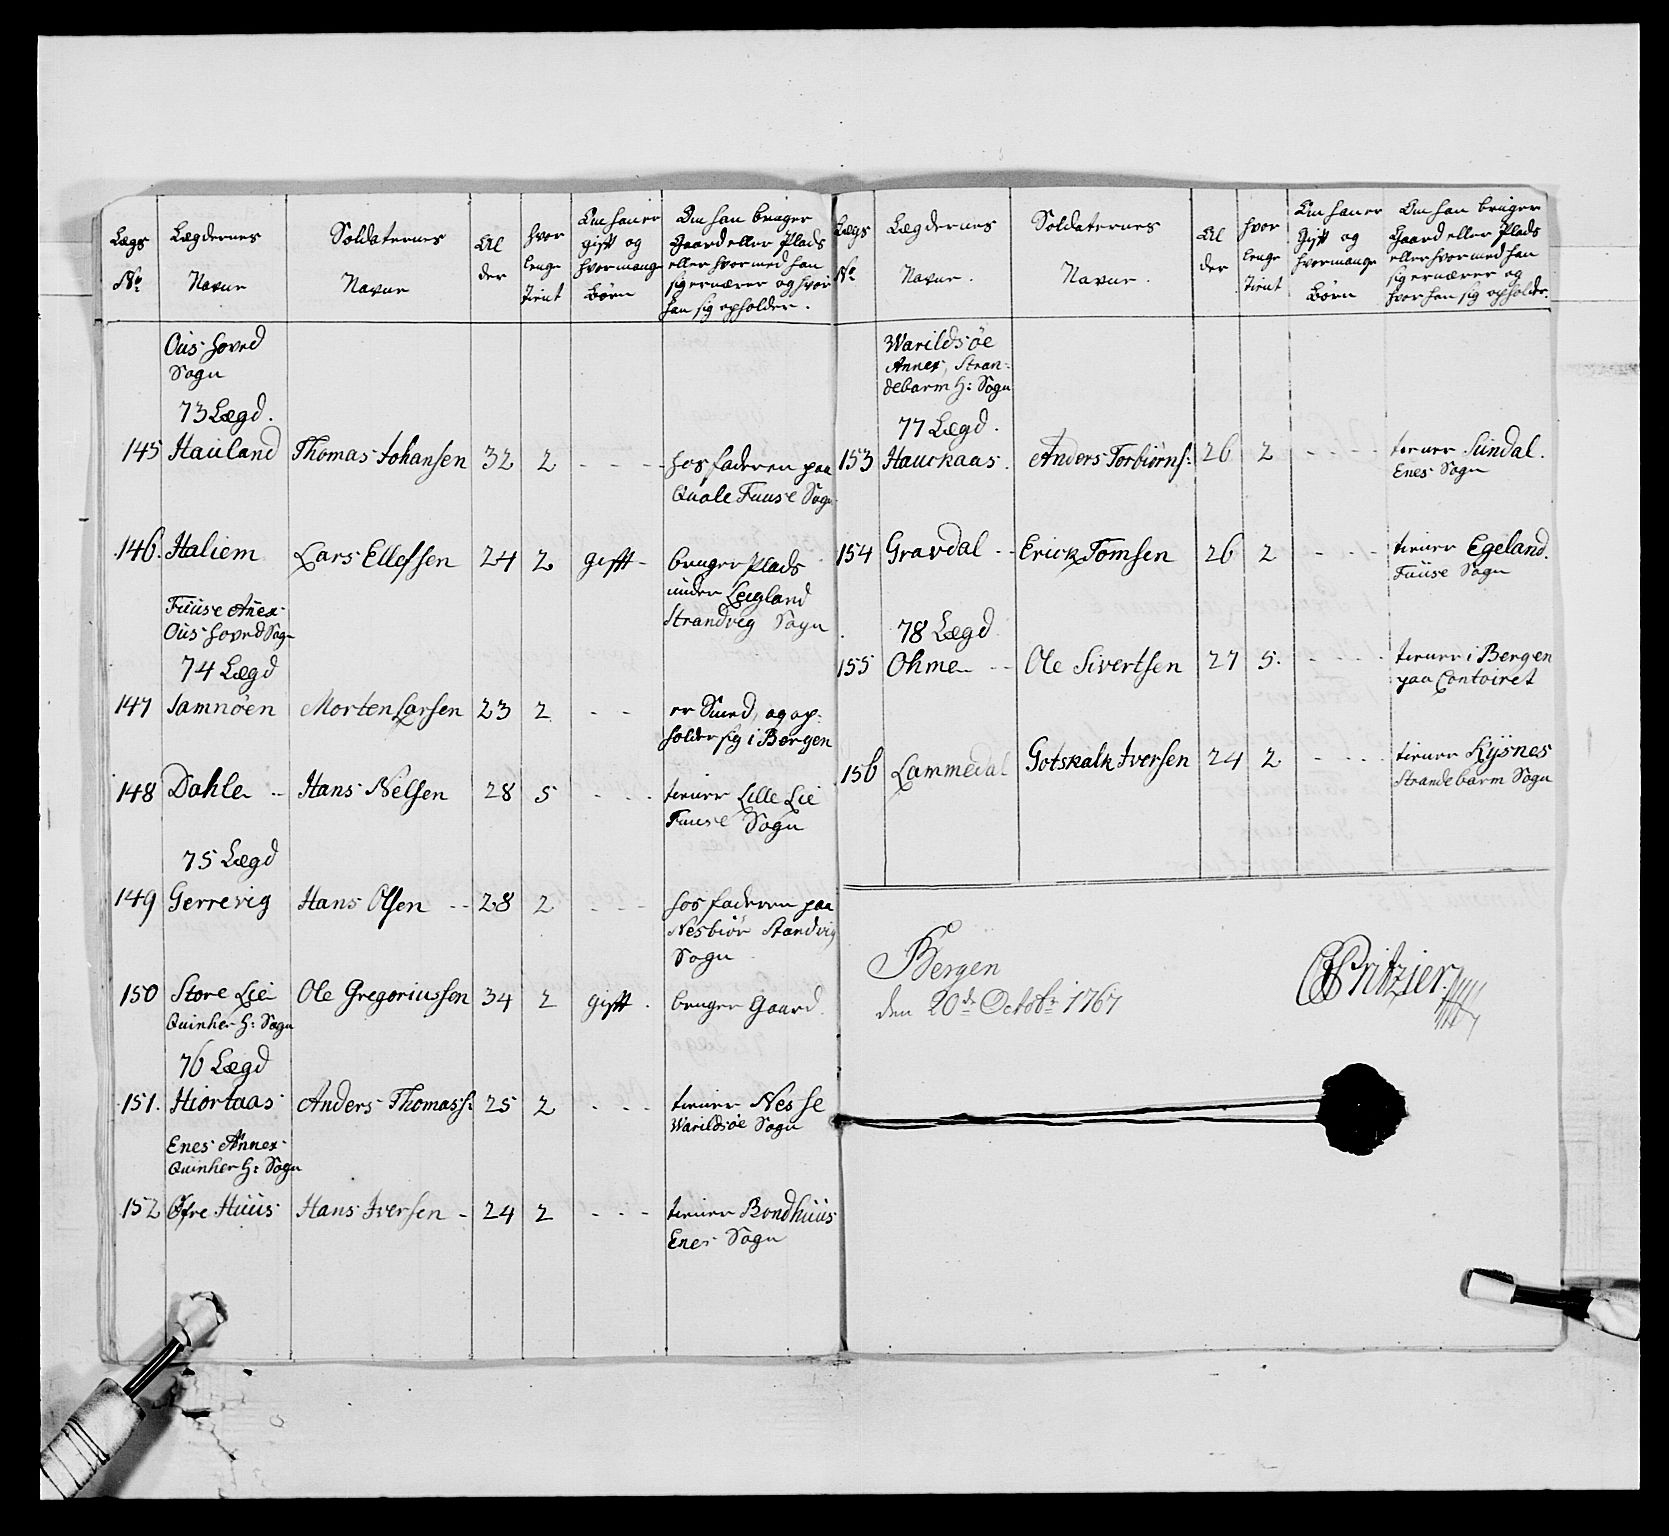 Lægs No:
Lægdernes Navne
Soldaternes Navne
Alder
hvor lenge tient
Om han er gift og hvor mange Børn
Om han bruger Gaard eller Plads eller hvormed han sig ernærer og hvor han sig opholder.
Ous hoved
Sogn
73 Lægd.
145 Hauland Thomas Johansen 32 2 - - - - hos faderen paa
Quale Fuuse Sogn
146. Haliem Lars Ellefsen 24 2 gifft - bruger Plads
under Legland
Strandvig Sogn
Fuuse Anex
Ous hoved Sogn
74 Lægd
147 Samnøen Morten Larsen 23 2 - - er Smed, og op-
holder sig i Bergen
148 Dahle - Hans Nelsen 28 5 - - - tiener Lille Lie
Fuuse Sogn
75 Lægd
149 Gerrevig Hans Olsen - - 28 2 - - - hos faderen paa
Nesbiør Standvig
Sogn
150 Store Lie Ole Gregoriussen 34 2 gifft. bruger Gaard.
Quinher H: Sogn
76 Lægd
151. Hiortaas Anders Thomass: 25 2 - - - tiener Nesse
Warildsøe Sogn
Enes Annex
Quinher H: Sogn
152 Øfre Huus Hans Iversen - 24 2 - - - tiener Bondhuus
Enes Sogn
Lægs No
Lægdernes Navne.
Soldaternes Navne.
Alder
hvor lenge tient
Om han er gift og hvor mange Børn
Om han bruger Gaard eller Plads eller hvormed han sig ernærer og hvor han sig opholder.
Warildsøe
Annex, Stran-
debarm H: Sogn
77 Lægd.
153 Hauckaas. Anders Torbiørns: 26 2 - - - - tiener Sundal.
Enes Sogn
154 Gravdal - - Erick Tomsen 26 2 - - - tiener Egeland.
Fuuse Sogn
78 Lægd
155 Ohme - - Ole Sivertsen 27 5. - - - - tiener i Bergen
paa Contoiret
156 Lammedal Gotskalk Iversen 24 2 - - - - tiener Kysnes
Strandebarm Sogn
Bergen
den 20de Octobr: 1767
Pritzier